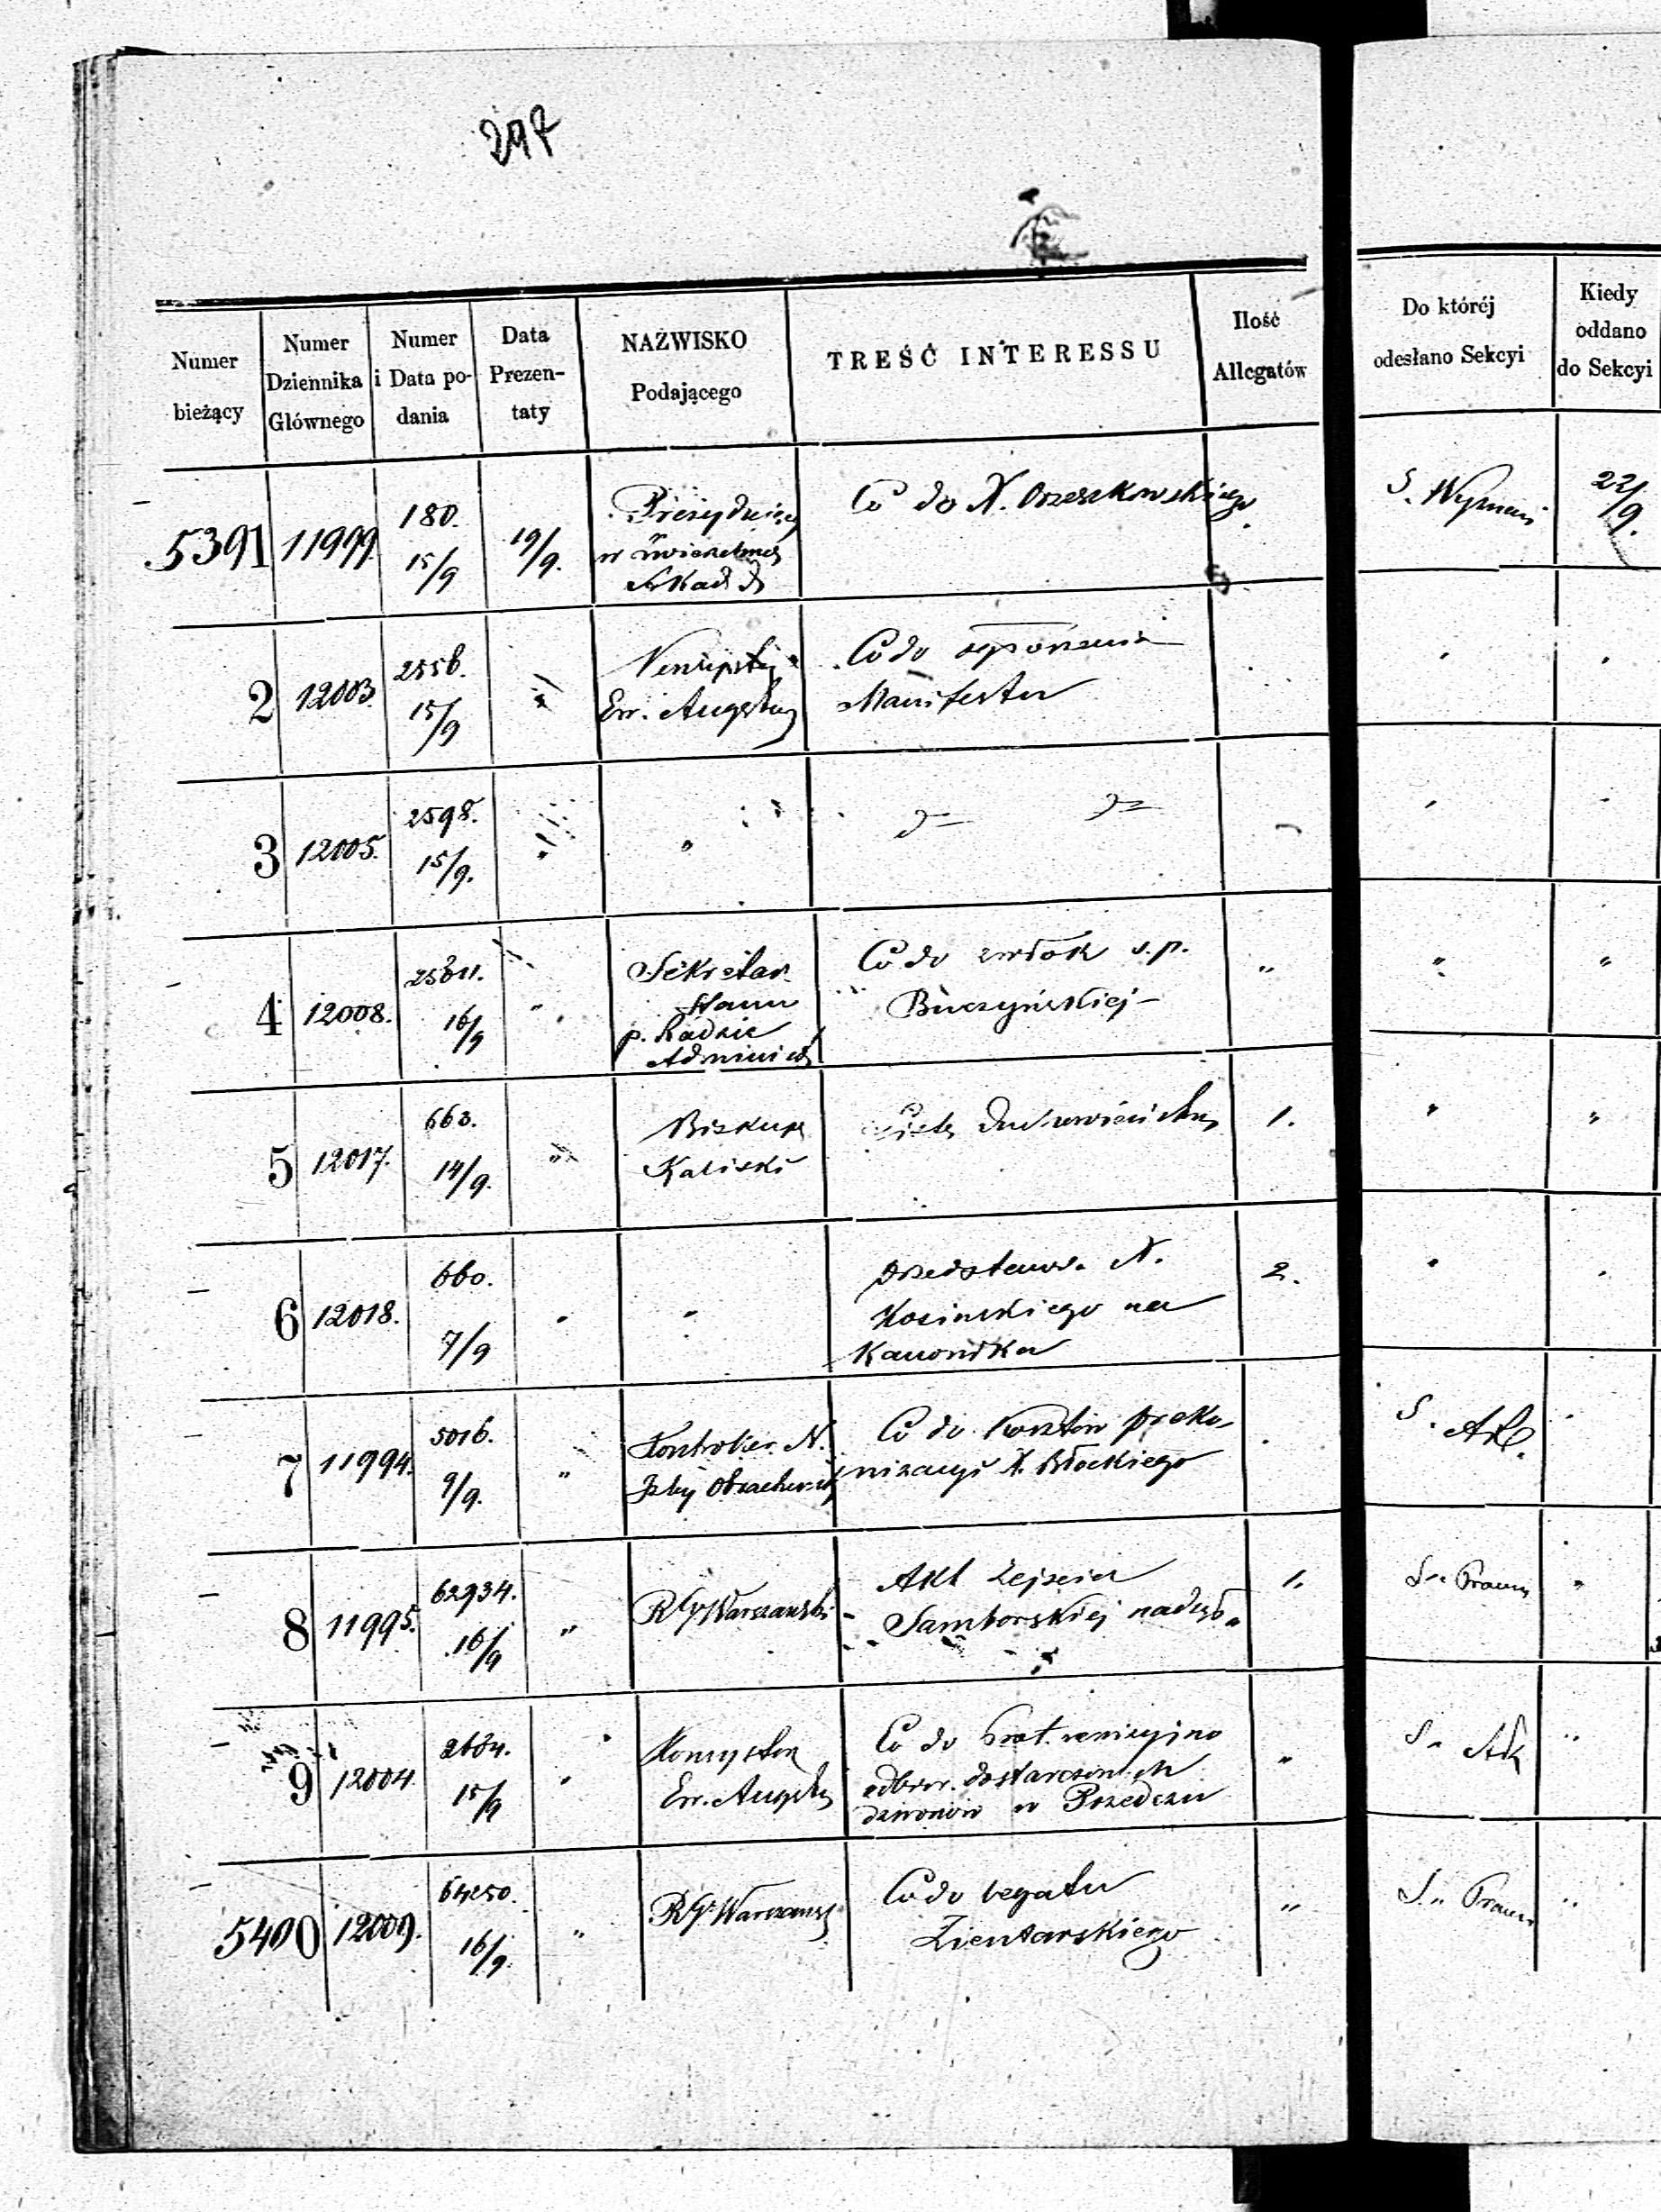 297
Numer bieżący | Numer Dziennika Głównego | Numer i Data podania | Data Prezentaty | NAZWISKO Podającego | TREŚĆ INTERESSU | Ilość Allegatów | Do któréj odesłano Sekcyi | Kiedy oddano do Sekcyi
5391 | 11999. | 180. 15/9 | 19/9. | w | Co do X. Orzeszkowskiego | . | S. Wyznań | 22/9.
2 | 12003. | 2556. 15/9 | " | Ew. Augsbu | Co do ogłoszenia Manifestu
3 | 12005. | 2598. 15/9. | " | " | do do
4 | 12008. | 16/9 | " | Sekretar. Stanu p. Radzie Administ | Co do zwłok ś.p. Buczyńskiej – | " | " | "
5 | 12017. | 663. 14/9. | " | Biskup Kaliski | 1. | " | "
6 | 12018. | 660. 7/9 | " | " | przedstaw. X. Kosińskiego na Kanonika | 2. | " | "
7 | 11994. | 5016. 9/9. | " | Kontroler. N. Izby Obrachun | Co do kosztów prekonizacyi X. Błockiego | . | S. | "
8 | 11995. | 62934. 16/9 | " | RG Warszawski | Akt zejścia Samborskiej | 1. | S. Prawn | "
9 | 12004. | 15/9 | " | Konsystor Ew. Augsbu | Co do odbior. dostarczon. dzwonów w Przedczu | " | S. | "
5400 | 12009. | 64250. 16/9. | " | RG Warszawsk | Co do legatu Zientarskiego | " | S. Prawn | "